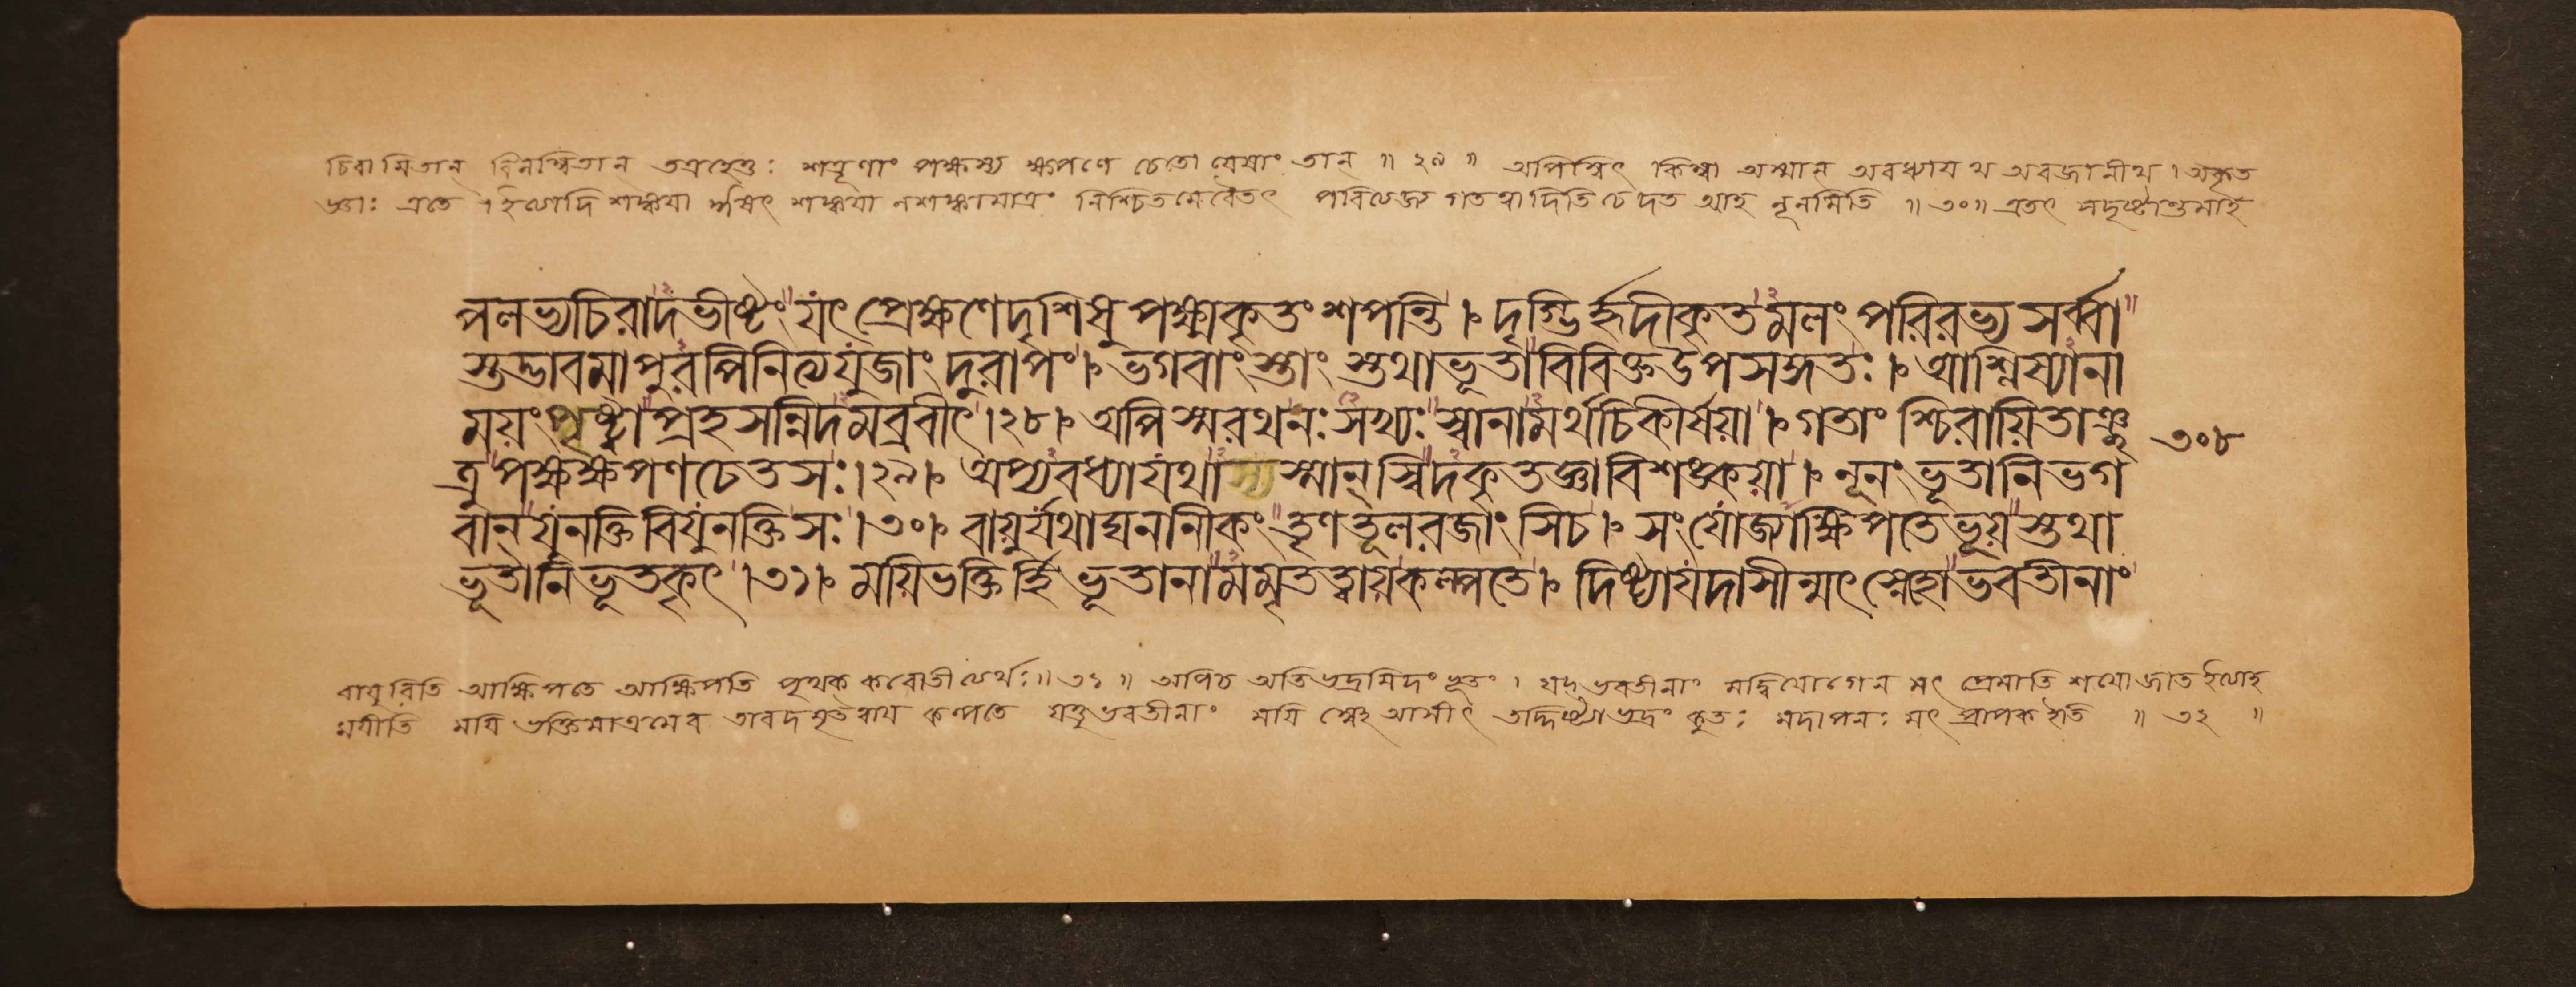 চিরায়িতান্ বিলম্বিতান্ তত্রহেতুঃ শত্রূণাং পক্ষস্য ক্ষপণে চেতো যেষাং তান্ ॥ ২৯ ॥ অপিস্বিৎ কিম্বা অস্মান্ অবধ্যায়থ অবজানীথ । অকৃত
জ্ঞাঃ এতে ইত্যাদি শঙ্কয়া শঙ্কয়া নশঙ্কামাত্রং নিশ্চিতমেবৈতৎ পরিত্যজ্য গতত্বাদিতি চেদত আহ নূনমিতি ॥ ৩০ ॥ এতৎ সদৃষ্টান্তমাহ
পলভ্যচিরাদভীষ্টং যৎ প্রেক্ষণে দৃশিষু পক্ষ্মকৃতং শপন্তি । দৃগ্ভির্হৃদীকৃতমলং পরিরভ্য সর্ব্বা
স্তদ্ভাবমাপুরপিনিত্যযুজাং দুরাপং । ভগবাংস্তাং স্তথাভূতা বিবিক্তউপসঙ্গতঃ । আশ্লিষ্যানা
ময়ং পৃষ্ট্বা প্রহসন্নিদমব্রবীৎ । ২৮ । অপিস্মরথনঃ সখ্যঃ স্বানামর্থচিকীর্ষয়া । গতাং শ্চিরায়িতাঞ্ছ ৩০৮
ত্রুপক্ষক্ষপণচেতসঃ । ২৯ । অপ্যবধ্যায়থাস্মান্ স্বিদকৃতজ্ঞাবিশঙ্কয়া । নূনং ভূতানি ভগ
বান্ যুনক্তি বিযুনক্তি সঃ । ৩০ । বায়ুর্যথাঘনানীকং তৃণতূলরজাংসিচ । সংযোজ্যাক্ষিপতে ভূয়স্তথা
ভূতানি ভূতকৃৎ । ৩১ । ময়িভক্তির্হি ভূতানামমৃতত্বায়কল্পতে । দিষ্ট্যা যদাসীন্মৎস্নেহো ভবতীনাং
বায়ুরিতি আক্ষিপতে আক্ষিপতি পৃথক্ করোতীত্যর্থঃ ॥ ৩১ ॥ অপিচ অতিভদ্রমিদং । যদ্ ভবতীনাং মদ্বিয়োগেন মৎ প্রেমাতিশয়োজাত ইত্যাহ
ময়ীতি ময়ি ভক্তিমাত্রমেব তাবদমৃতত্বায় কল্পতে যত্তু ভবতীনাং ময়ি স্নেহ আসীৎ তদ্দিষ্ট্যা ভদ্রং কুতঃ মদাপনঃ মৎ প্রাপক ইতি ॥ ৩২ ॥